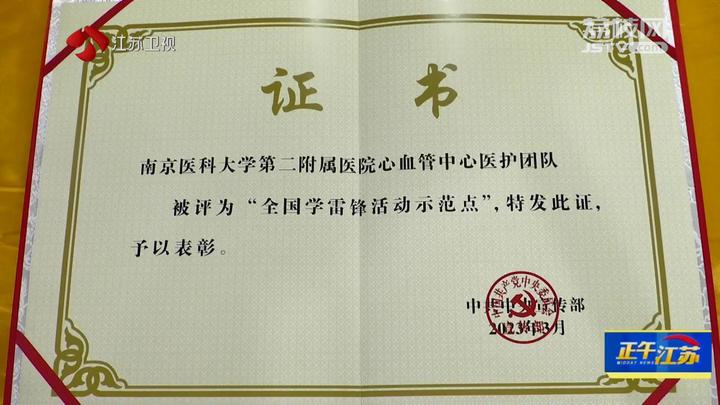 江苏卫视
荔枝网
JSTV.com
证书
南京医科大学第二附属医院心血管中心医护团队
被评为“全国学雷锋活动示范点”，特发此证，
予以表彰。
中共中央宣传部
2023年3月
正午江苏
MIDDAY NEWS